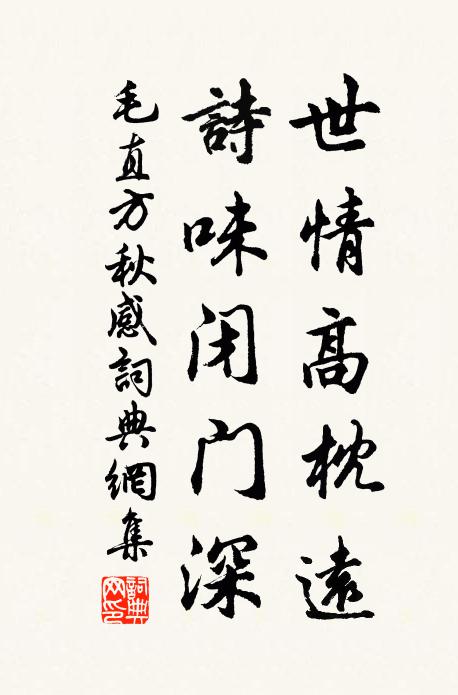 世情高枕遠
詩味閉門深
毛直方秋感詞典網集
詞典網印